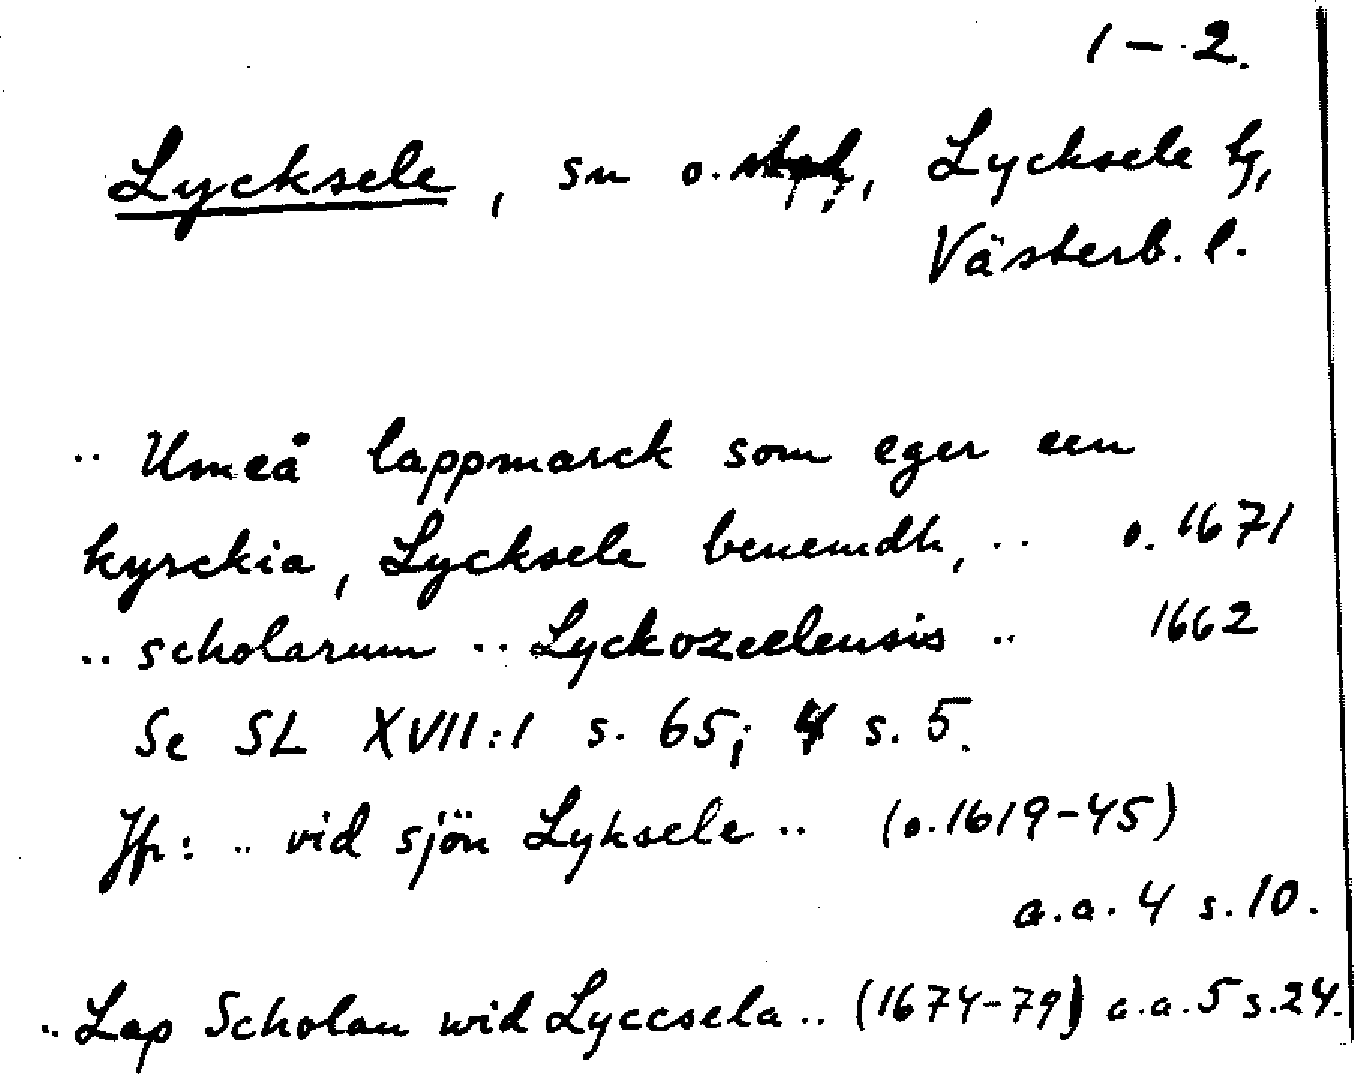 1–2.
Lycksele, sn o. , Lycksele lg,
Västerb. l.
.. Umeå lappmarck som eger een
kyrckia, Lycksele benemdh, .. o. 1671
.. scholarum .. Lyckozeelensis .. 1662
Se SL XVII:1 s. 65; 4 s. 5.
Jfr: .. vid sjön Lyksele .. (o.1619-45)
a.a. 4 s. 10.
.. Lap Scholan wid Lyccsela .. (1674-79) a.a. 5 s. 24.